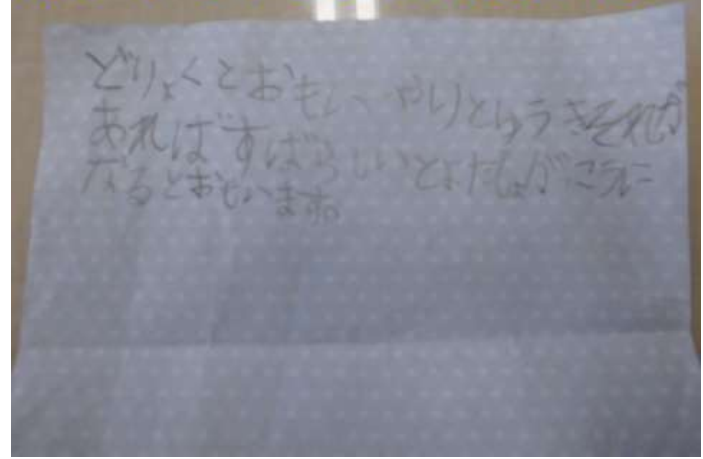 どりょくとおもいやりとゆうきそれが
あればすばらしいとよたしょがっこうに
なるとおもいます。